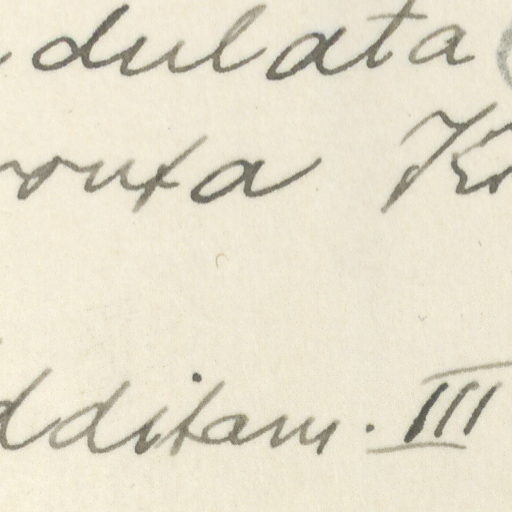 dulata
outa K
dditam. III